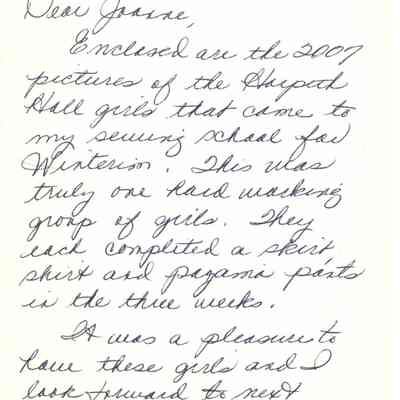 Dear Joanne,
Enclosed are the 2007
pictures of the Harpeth
Hall girls that came to
my sewing school for
Winterim. This was
truly one hard working
group of girls. They
each completed a skirt,
shirt and pajama pants
in the three weeks.
It was a pleasure to
have these girls and I
look forward to next